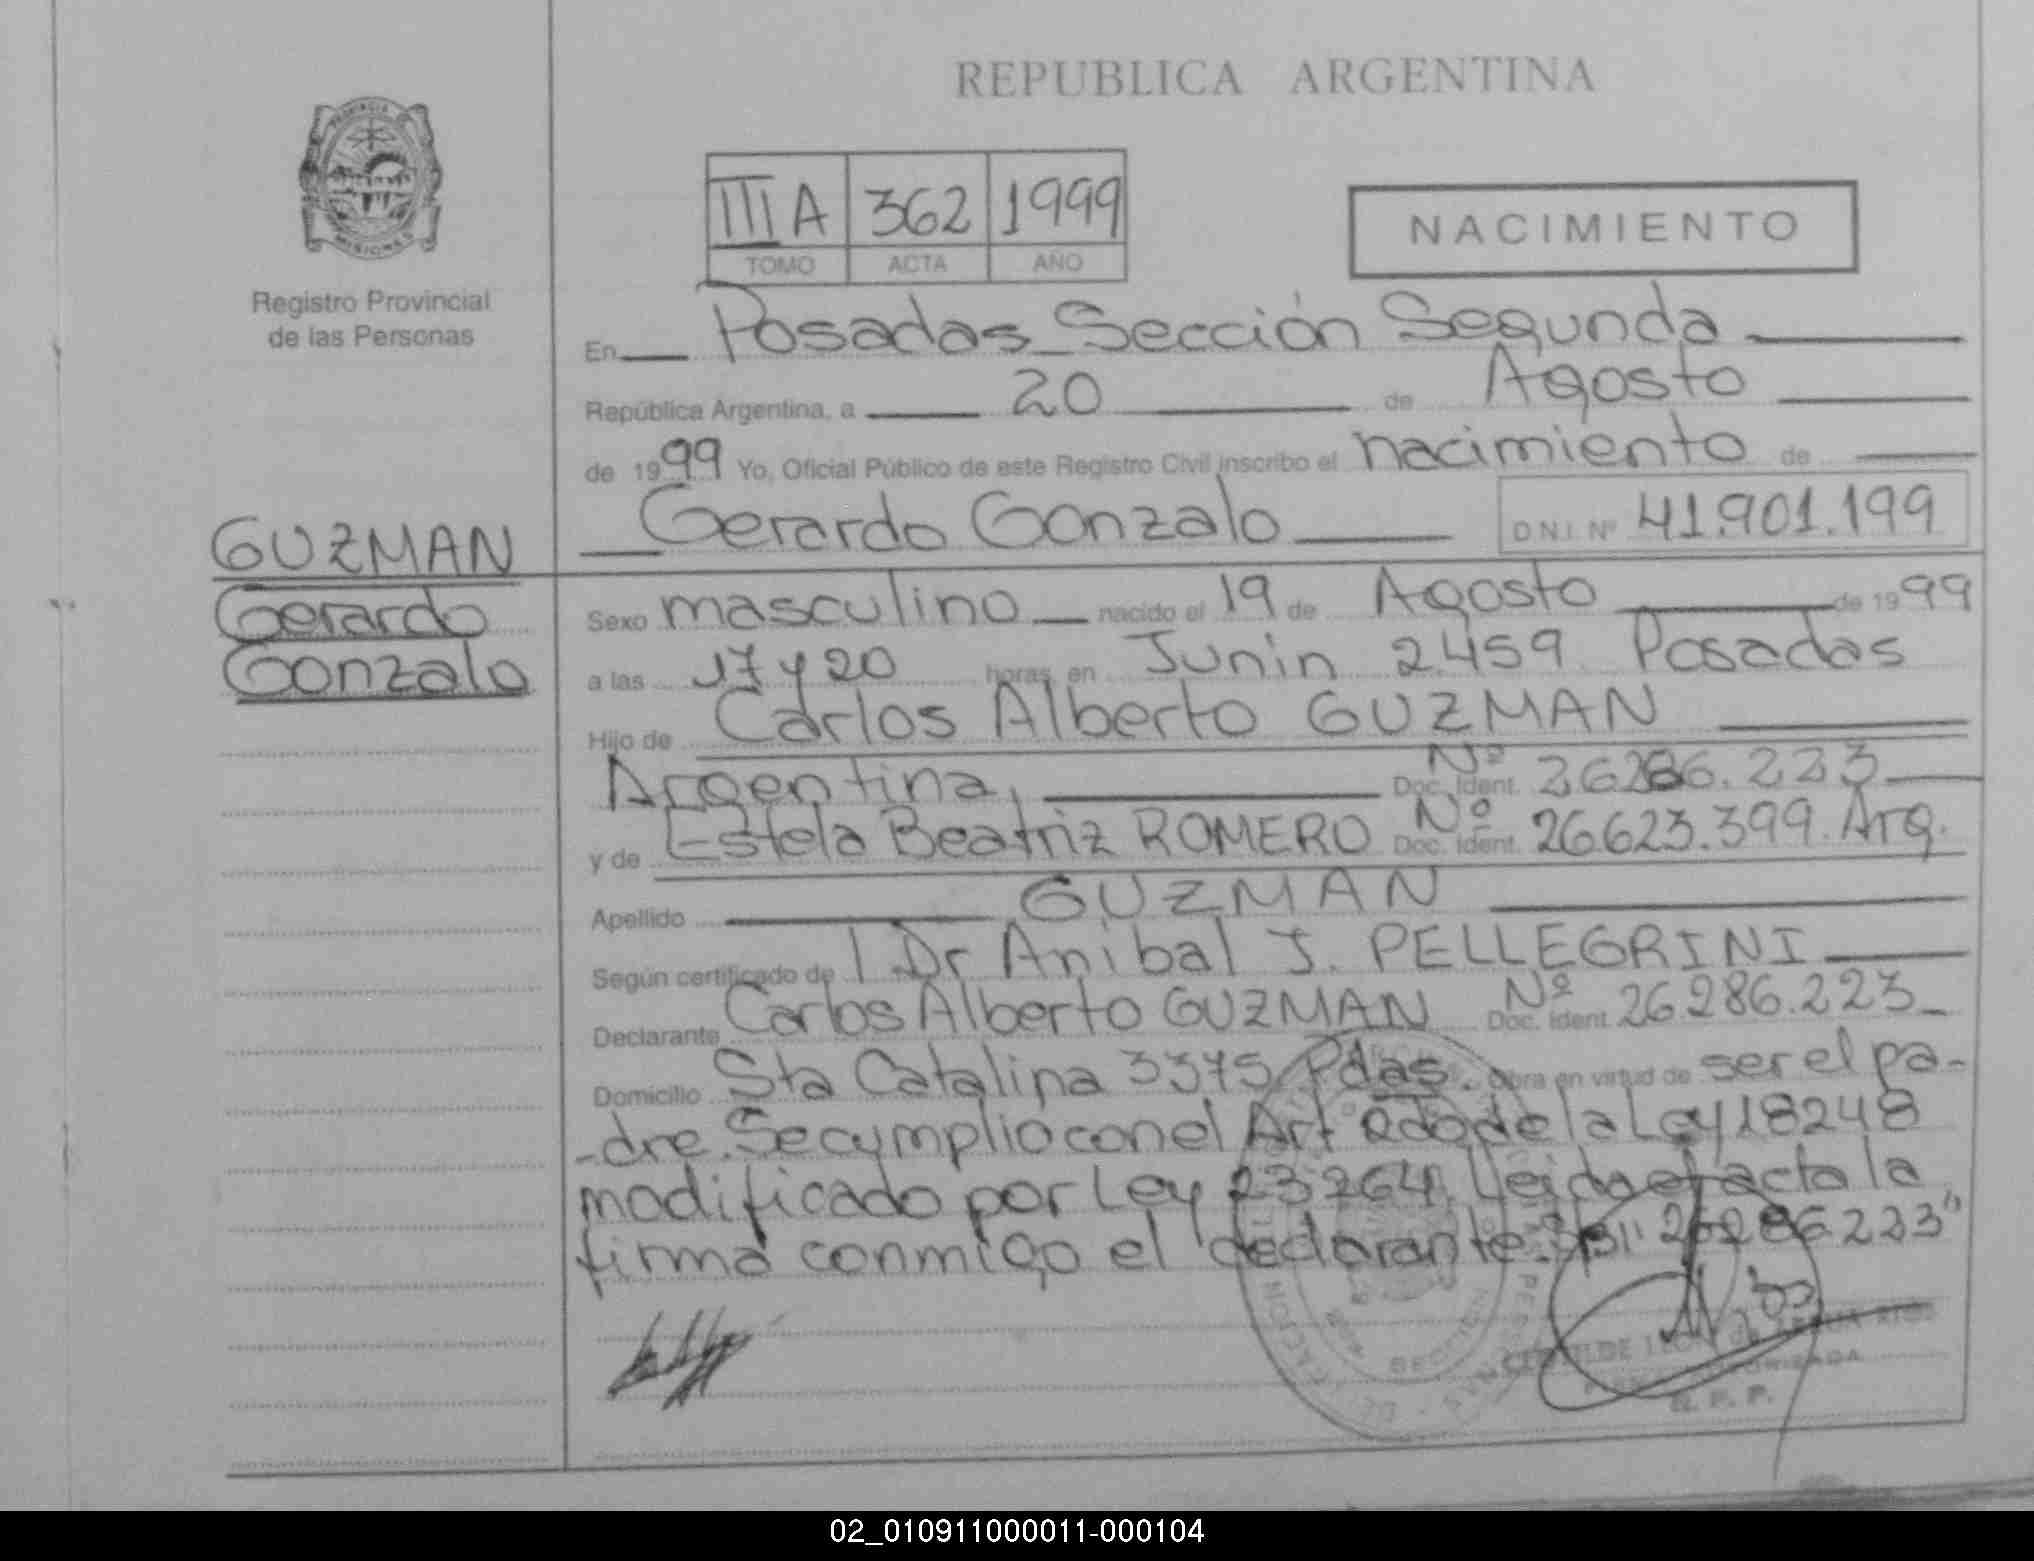 REPUBLICA ARGENTINA
PROVINCIA DE
MISIONES
Registro Provincial
de las Personas
III A 362 1999
TOMO ACTA AÑO
NACIMIENTO
En Posadas Sección Segunda
República Argentina, a 20 de Agosto
de 1999 Yo, Oficial Público de este Registro Civil inscribo el nacimiento de
Gerardo Gonzalo D.N.I. Nº 41.901.199
GUZMAN
Gerardo
Gonzalo
Sexo masculino nacido el 19 de Agosto de 1999
a las 17 y 20 horas, en Junin 2459 Posadas
Hijo de Carlos Alberto GUZMAN
Argentina, Nº Doc. Ident. 26286.223
y de Estela Beatriz ROMERO Nº Doc. Ident. 26623.399. Arg.
Apellido GUZMAN
Según certificado de Dr Anibal J. PELLEGRINI
Declarante Carlos Alberto GUZMAN Nº Doc. Ident. 26.286.223
Domicilio Sta Catalina 3375 Pdas. Obra en virtud de ser el pa-
-dre. Se cumplio con el Art 2do de la Ley 18248
modificado por Ley 23264. Leida el acta la
firma conmigo el declarante. 26286223"
SECCION
AUTORIZADA
R. P. P.
02_010911000011-000104